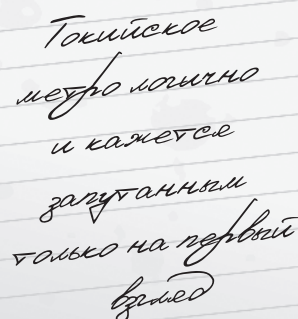 Токийское
метро логично
и кажется
запутанным
только на первый
взгляд